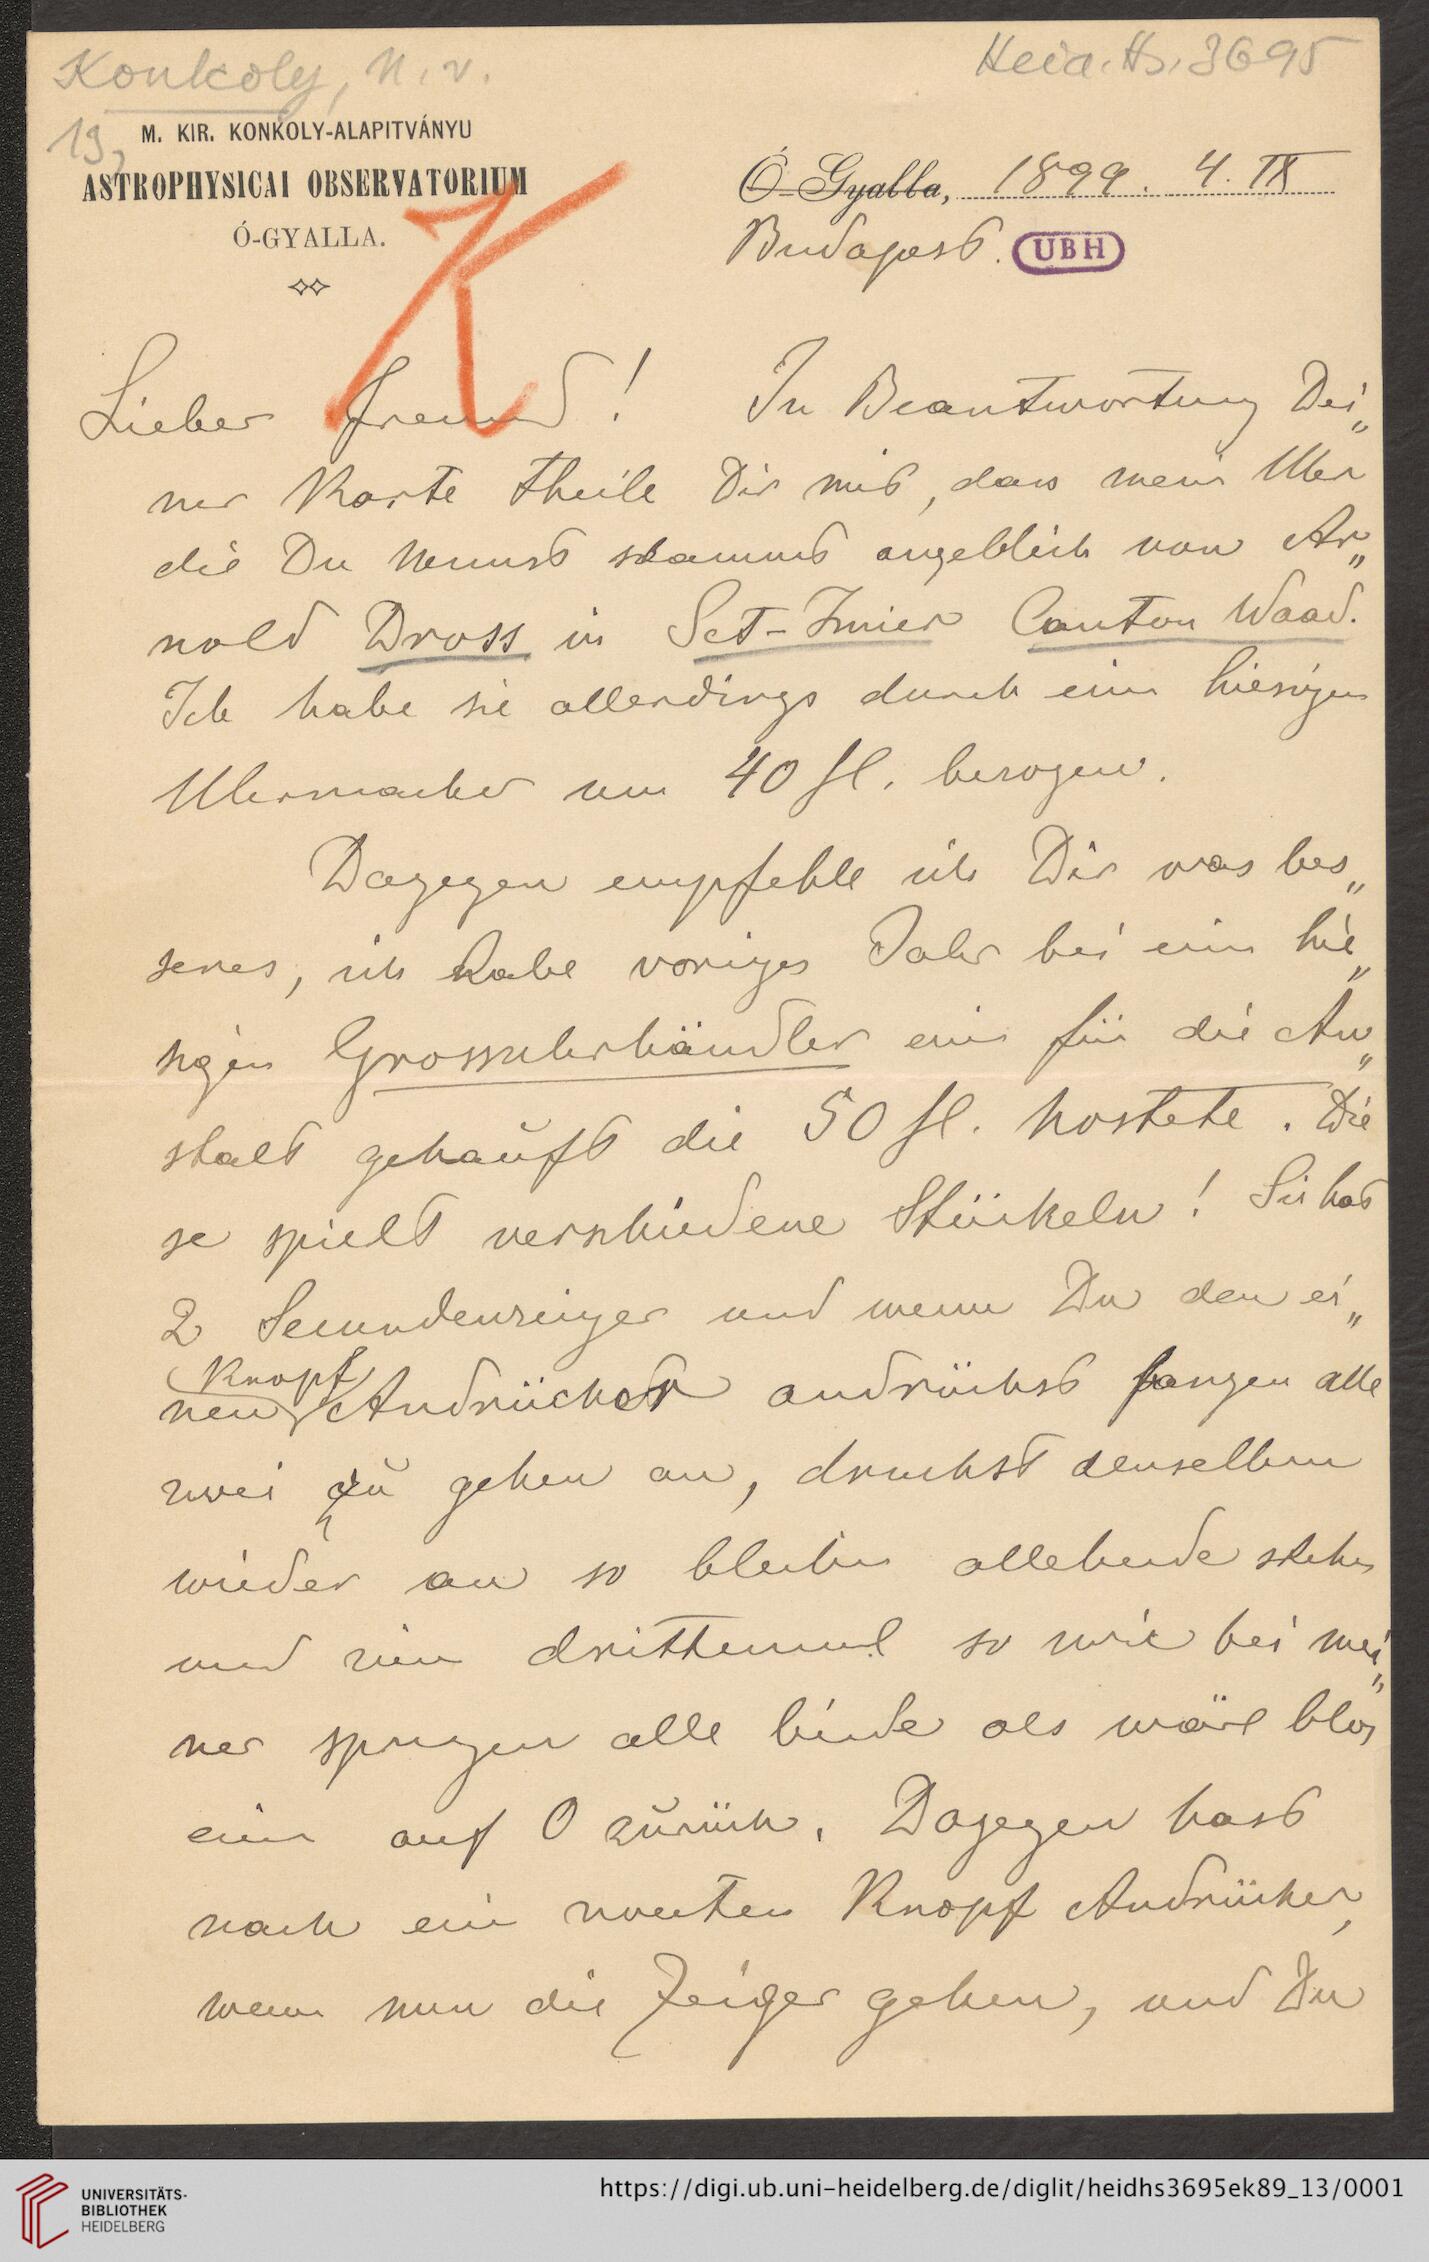 Konkoly, N. v.
Heid. Hs. 3695
19,
M. KIR. KONKOLY-ALAPITVÁNYU
ASTROPHYSICAI OBSERVATORIUM
Ó-GYALLA.
K
Ó-Gyalla, 1899. 4. IX
Budapest. UBH
Lieber Freund! In Beantwortung Dei„
ner Karte theile Dir mit, dass mein Uhr
die Du kennst stammt angeblich von Ar„
nold Dross in Sct-Imier Canton Waad.
Ich habe sie allerdings durch einen hiesigen
Uhrmacher um 40 fl. bezogen.
Dagegen empfehle ich Dir was bes„
seres, ich habe voriges Jahr bei ein hie„
sigen Grossuhrhändler eine für die An„
stalt gekauft die 50 fl. kostete. Die
se spielt verschiedene Stückeln! Sie hat
2 Secundenzeiger und wenn Du den ei„
Knopf
nen Andrücker andrückst fangen alle
zwei zu gehen an, druckst denselben
wieder an so bleiben allebeide stehen
und zum drittenmal so wie bei mei„
ner springen alle beide als wäre blos
einer auf 0 zurück. Dagegen hast
noch ein zweiten Knopf Andrücker,
wenn nun die Zeiger gehen, und Du
UNIVERSITÄTS-
BIBLIOTHEK
HEIDELBERG
https://digi.ub.uni-heidelberg.de/diglit/heidhs3695ek89_13/0001